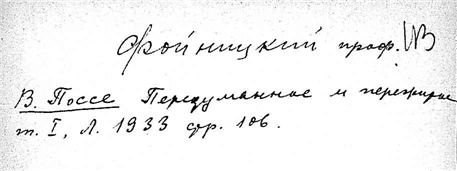 Фойницкий проф.
В. Поссе Передуманное и пережитое
т. I, Л. 1933 стр. 106.